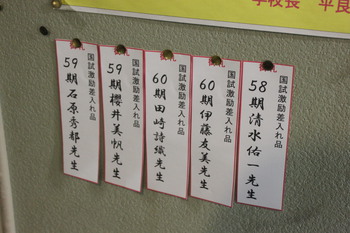 学校長　平良
御礼
国試激励差入れ品
58期清水佑一先生
御礼
国試激励差入れ品
60期伊藤友美先生
御礼
国試激励差入れ品
60期田崎詩織先生
御礼
国試激励差入れ品
59期櫻井美帆先生
御礼
国試激励差入れ品
59期石原秀都先生